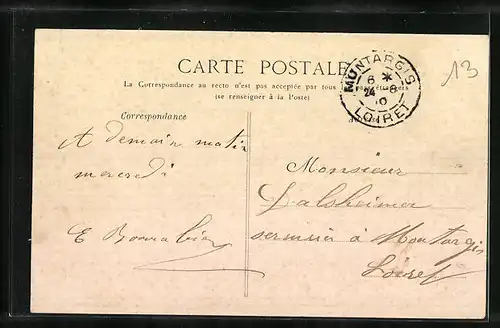 CARTE POSTALE
La Correspondance au recto n'est pas acceptée par tous
(se renseigner à la Poste)
MONTARGIS
6 *
24 -8
10
LOIRET
13
Correspondance
A demain matin
mercredi
E
Monsieur
Dalsheimer
à Montargis
Loiret